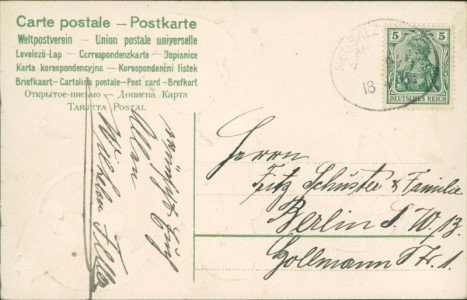 Carte postale — Postkarte
Weltpostverein — Union postale universelle
Levelező-Lap — Correspondenzkarte — Dopisnice
Karta korespondencyjna — Korespondenční lístek
Briefkaart — Cartolina postale — Post card — Brefkort
Открытое письмо — Дописна Карта
Tarjeta Postal
5 5
DEUTSCHES REICH
NEUSALZ
18
wünscht Euch
Allen
Wilhelm
Herrn
Fritz Schuster & Familie
Berlin S. W. 13.
Hollmann Str. 1